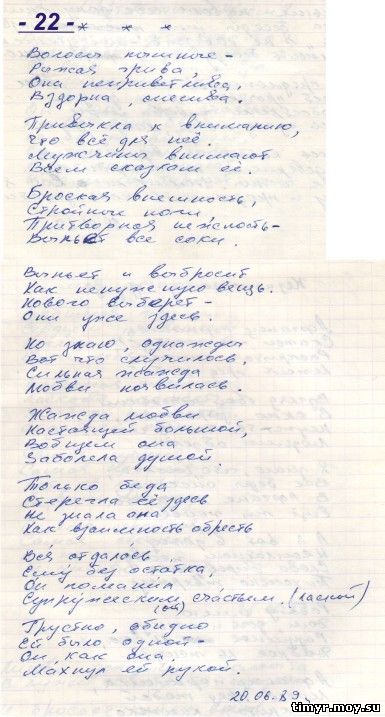 - 22 -
* * *
Волосы пышные -
Рыжая грива,
Она неприветлива,
Вздорна, спесива.
Привыкла к вниманию,
Что всё для неё.
Мужчины внимают
Всем сказкам её.
Броская внешность,
Стройные ноги,
Притворная нежность -
Выпьет все соки.
Выпьет и выбросит
Как ненужную вещь.
Нового выберет -
Они уже здесь.
Но знаю, однажды
Вот что случилось,
Сильная жажда
Любви появилась.
Жажда любви
Настоящей большой,
Вобщем она
Заболела душой.
Только беда
Стерегла её здесь
Не знала она
Как взаимность обресть
Вся отдалась
Ему без остатка,
Он поманил
Супружеским счастьем. (лаской)
(ой)
Грустно, обидно
Ей было одной -
Он, как она,
Махнул ей рукой.
20.06.89г.
timyr.moy.su